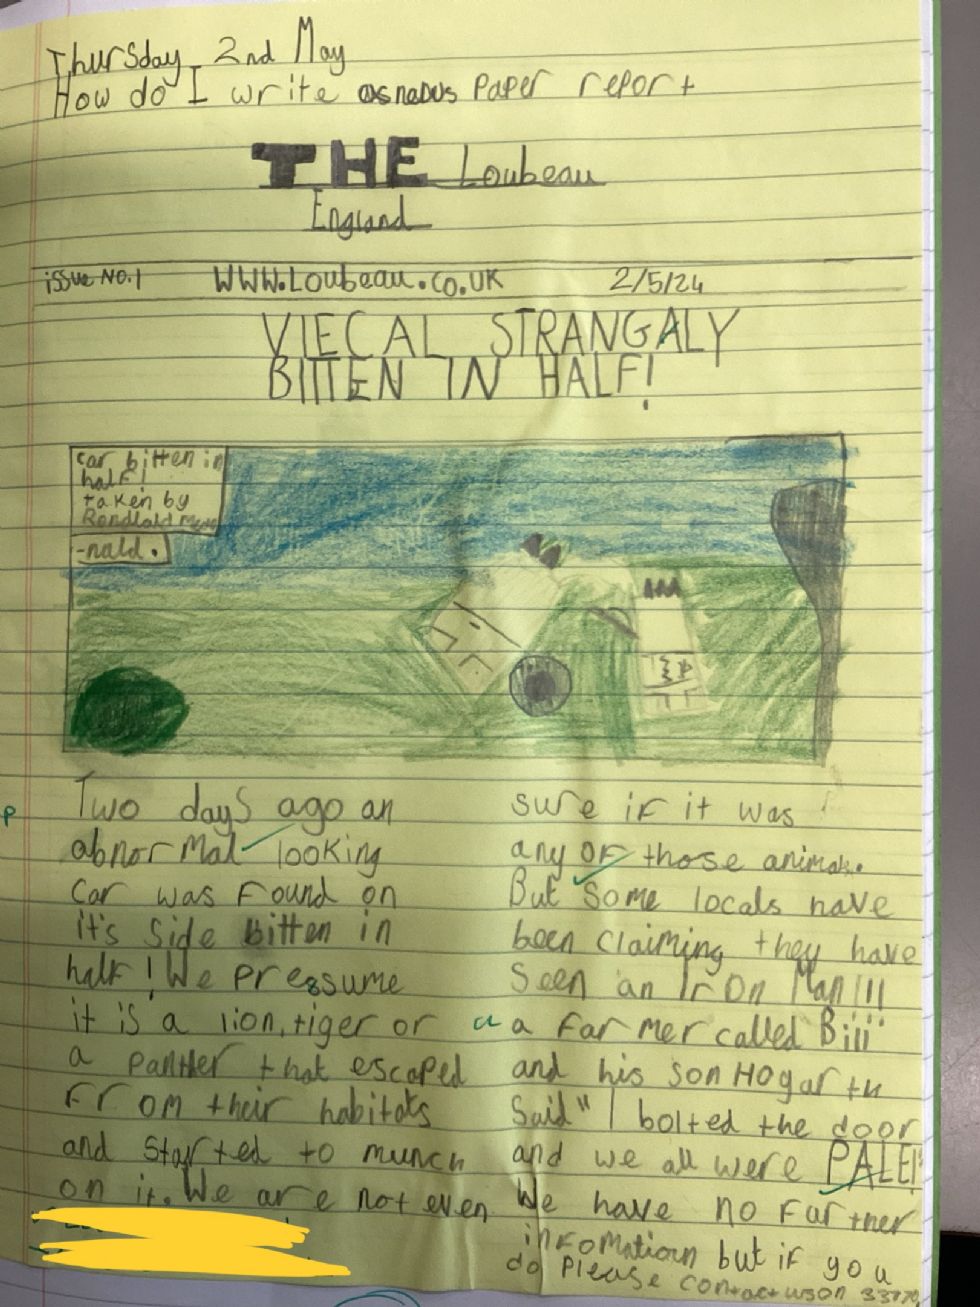 Thursday 2nd May
How do I write a newspaper report
THE Loubeau
England
issue No.1 WWW.Loubeau.co.uk 2/5/24
VIECAL STRANGALY
BITTEN IN HALF!
car bitten in
half!
taken by
-nald.
Two days ago an
abnormal looking
car was found on
it's side bitten in
half! We pressume
it is a lion, tiger or
a panther that escaped
from their habitats
and started to munch
on it. We are not even
sure if it was
any of those animals.
But some locals have
been claiming they have
seen an Iron Man!!!
a farmer called Bill
and his son Hogarth
said" I bolted the door
and we all were PALE!"
We have no farther
infomatiorn but if you
do please contact us on